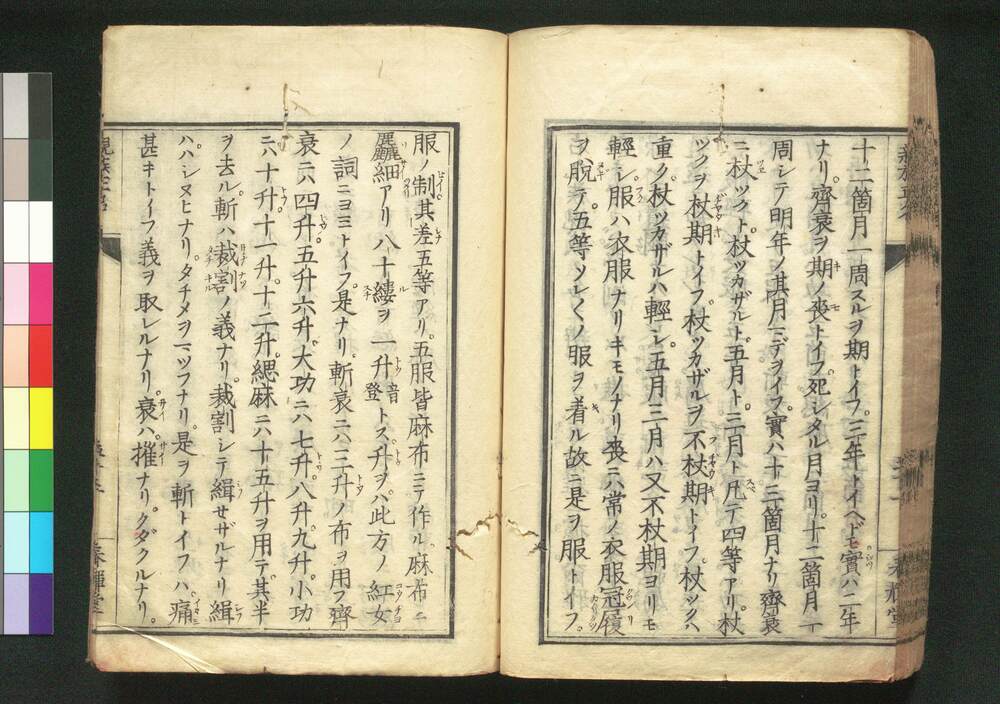 十二箇月一周スルヲ期トイフ。三年トイヘドモ實ハ二年
ナリ。齊衰ヲ期ノ喪トイフ。死シタル月ヨリ。十二箇月一
周シテ明年ノ其月マデヲイフ。實ハ十三箇月ナリ齊衰
ニ杖ツクト。杖ツカザルト。五月ト。三月ト凡テ四等アリ。杖
ツクヲ杖期トイフ。杖ツカザルヲ不杖期トイフ。杖ツクハ
重ク。杖ツカザルハ輕シ。五月三月ハ又不杖期ヨリモ
輕シ。服ハ衣服ナリキモノナリ喪ニハ常ノ衣服冠履
ヲ脱テ。五等ソレ〱ノ服ヲ着ル故ニ是ヲ服トイフ。
服ノ制其差五等アリ。五服皆麻布ニテ作ル。麻布ニ
麤細アリ八十縷ヲ一升音登トス。升ヲハ此方ノ紅女
ノ詞ニヨミトイフ。是ナリ。斬衰ニハ三升ノ布ヲ用フ齊
衰ニハ四升。五升六升。大功ニハ七升。八升。九升。小功
ニハ十升十一升。十二升。緦麻ニハ十五升ヲ用テ。其半
ヲ去ル。斬ハ裁割ノ義ナリ。裁割シテ緝セザルナリ緝
ハハシヌヒナリ。タチメヲヌフナリ。是ヲ斬トイフハ。痛
甚キトイフ義ヲ取レルナリ。衰ハ。摧ナリ。クダクルナリ。